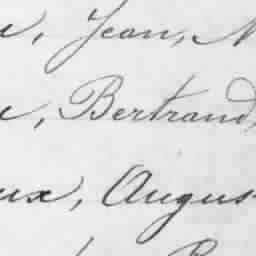 e, Jean, N
e, Bertrand,
ux, Augus